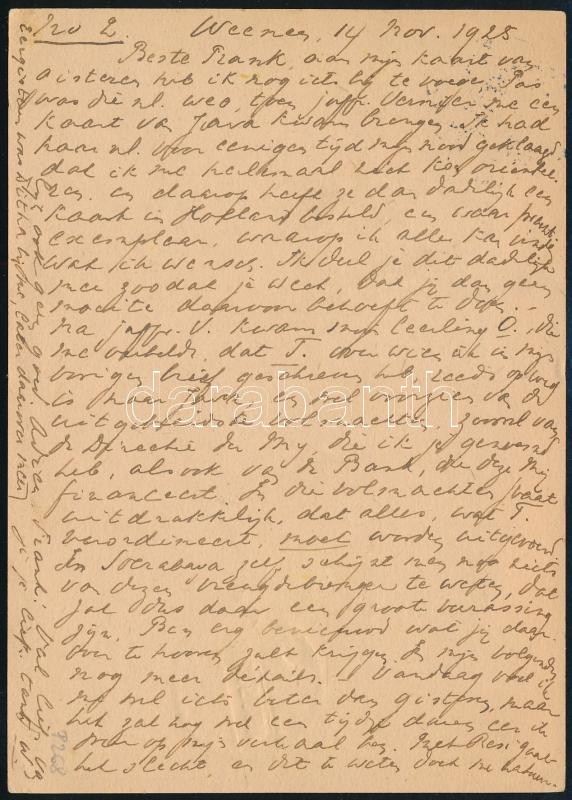 No 2. Weenen, 14 Nov. 1928
Beste Frank, aan mijn kaart van
gisteren heb ik nog iets bij te voegen. Pas
was die nl. weg, toen juffr. Vermeer me een
kaart van Java kwam brengen. Ik had
haar nl. voor eenigen tijd mijn nood geklaagd
dat ik me heelemaal niet kon oriëntee-
ren. en daarop heeft ze dan dadelijk een
kaart in Holland besteld, een waar pracht-
exemplaar, waarop ik alles kan vinden
wat ik wensch. Ik deel je dit dadelijk
mee zoodat je weet, dat jij dan geen
moeite daarvoor behoeft te doen. –
Na juffr. V. kwam mijn leerling O., die
me vertelde, dat T. over wien ik in mijn
vorigen brief geschreven heb, reeds op weg
is naar Java en wel voorzien van de
uitgebreidste volmachten, zoowel van
de Directie der Mij, die ik je genoemd
heb, alsook van de Bank, die deze Mij
financeert. In die volmachten staat
uitdrukkelijk, dat alles, wat T.
verordineert, moet worden uitgevoerd.
In Soerabaia zelf schijnt men nog niets
van dezen vreugdebrenger te weten, dat
zal dus daar een groote verrassing
zijn. Ben erg benieuwd wat jij daar-
over te hooren zult krijgen. In mijn volgenden
nog meer details. – Vandaag voel ik
me wel iets beter dan gisteren, maar
het zal nog wel een tijdje duren eer ik
weer op mijn verhaal ben. Met Resi gaat
het slecht, en dit te weten doet me
Eergisteren was Ditha bij me, later daarover meer
ook geen goed. Adieu Frank! Veel liefs van
je je liefh. tante
9268
darabanth